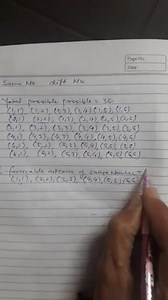 Page No.
Date
Same No. diff No
Total possible possible = 36
(1,1), (1,2), (1,3), (1,4), (1,5), (1,6)
(2,1), (2,2), (2,3), (2,4), (2,5), (2,6)
(3,1), (3,2), (3,3), (3,4), (3,5), (3,6)
(4,1), (4,2), (4,3), (4,4), (4,5), (4,6)
(5,1), (5,2), (5,3), (5,4), (5,5), (5,6)
(6,1), (6,2), (6,3), (6,4), (6,5), (6,6)
favourable outcome of same number =
(1,1), (2,2), (3,3), (4,4), (5,5), (6,6)